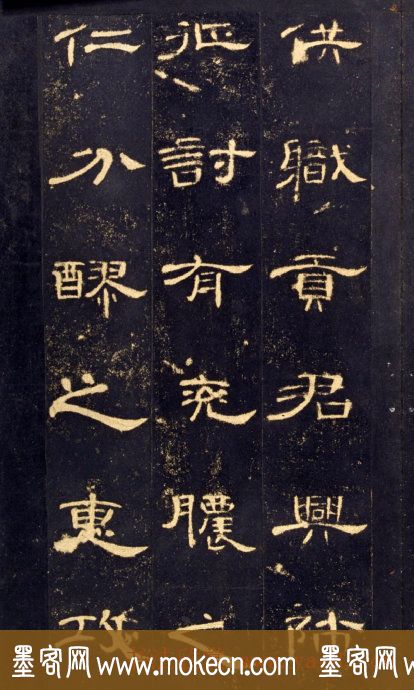 供職貢君興師
征討有兖膿之
仁分醪之惠攻
墨客网 www.mokecn.com 墨客网